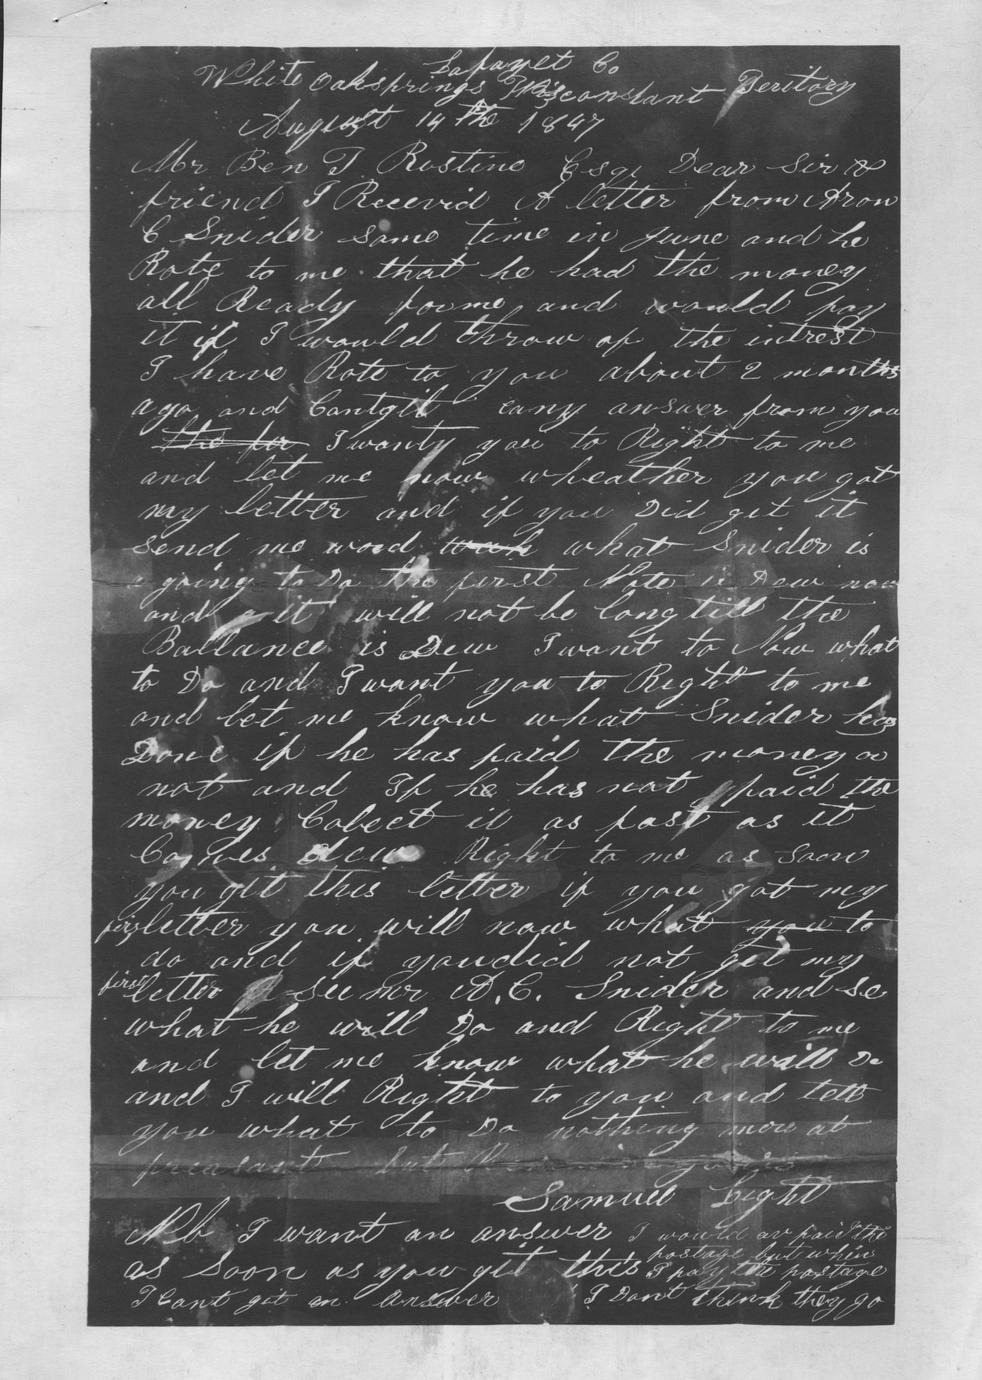 Lafayet Co
White Oaksprings Wisconstant Teritory
August 14 the 1847
Mr Ben T Rostine Esqr Dear Sir &
friend I Recevid A letter from Aron
C Snider some time in June and he
Rote to me that he had the money
all Ready for me and would pay
it if I would throw of the intrest
I have Rote to you about 2 months
ago and Cantgit eany answer from you
the for I wanty you to Right to me
and let me now wheather you got
my letter and if you Did get it
send me word what Snider is
a going to Do the first Note is Dew now
and it will not be long till the
Ballance is Dew I want to Now what
to Do and I want you to Right to me
and let me know what Snider has
Done if he has paid the money or
not and If he has not paid the
money Colect it as fast as it
Comes dew Right to me as Soon
you git this letter if you got my
first letter you will now what you to
do and if you did not get my
first letter see mr A. C. Snider and se
what he will Do and Right to me
and let me know what he will Do
and I will Right to you and tell
you what to Do nothing more at
preasant but Remain yours
Samuel Light
Nb I want an answer
as Soon as you git this
I Cant get an answer
I would av paid the
postage but when
I pay the postage
I Dont think they go